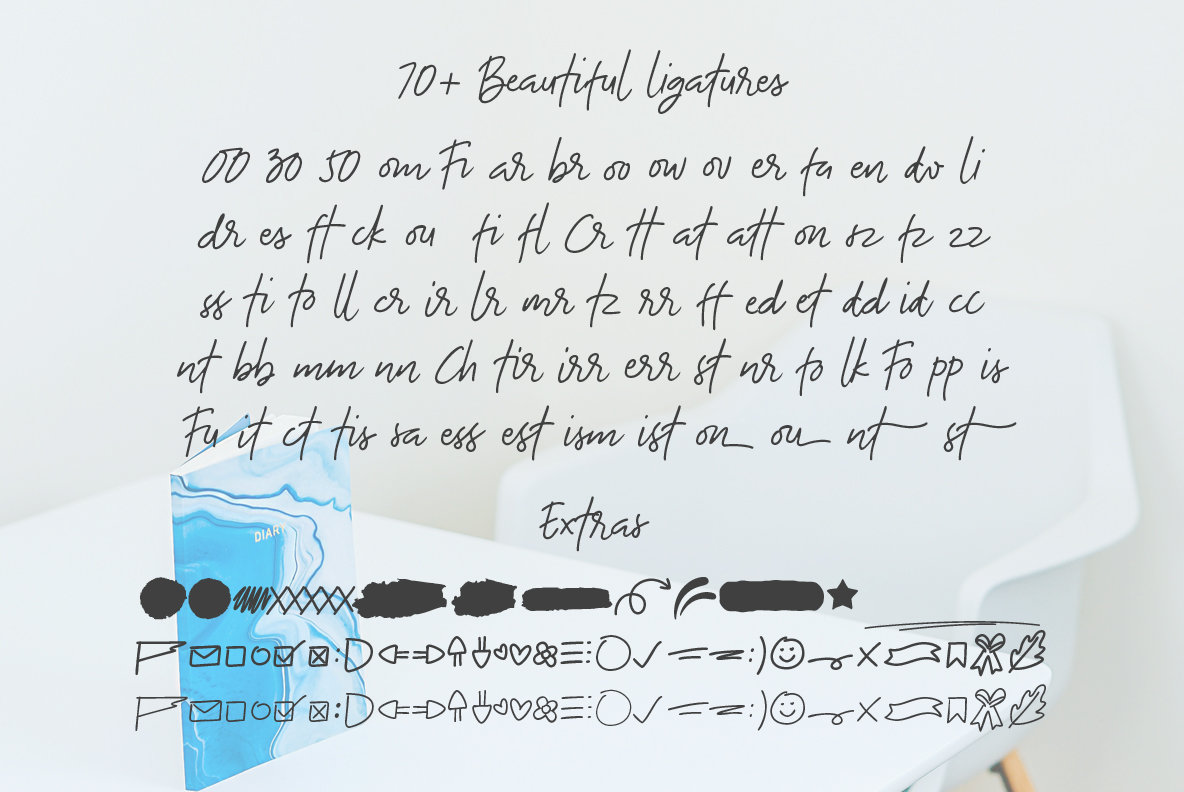 70+ Beautiful ligatures
00 30 50 om Fi ar br oo ow ov er fa en do li
dr es ft ck ou fi fl Cr tt at att on sz fz zz
ss ti to ll cr ir lr mr tz rr ff ed et dd id cc
nt bb mm nn Ch tir irr err st nr fo lk Fo pp is
Fu it ct tis sa ess est ism ist on ou nt st
Extras
DIARY
:D :)
:D :)